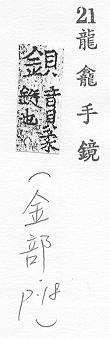 21 龍龕手鏡
鋇 音貝柔
鋌也
(金部 p.18)